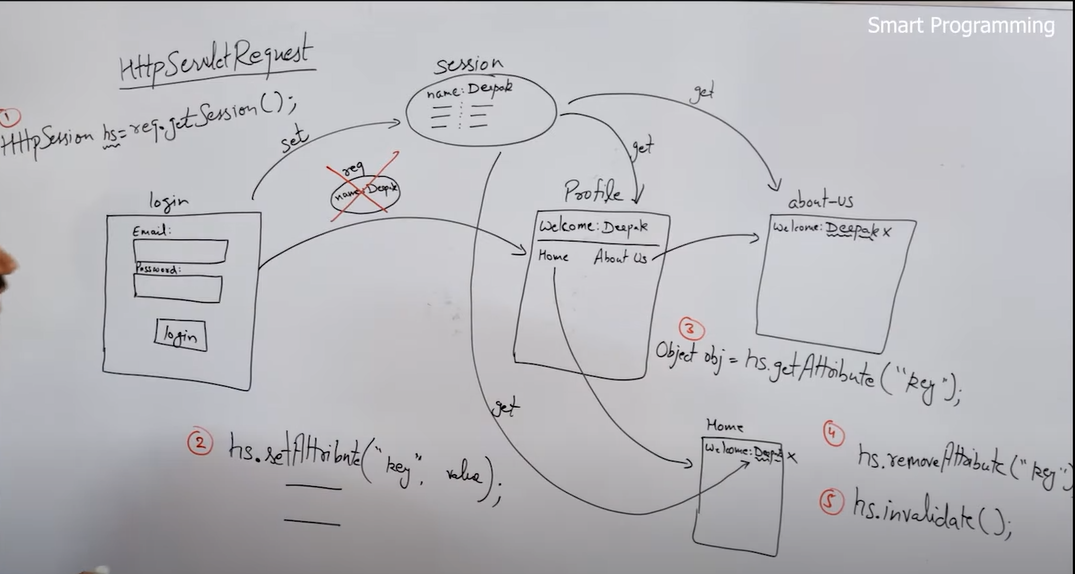 Smart Programming
HttpServletRequest
1
HttpSession hs=req.getSession();
session
name:Deepak
set
get
get
req
name:Deepak
login
Email:
Password:
login
Profile
Welcome:Deepak
Home About Us
about-us
Welcome:Deepak x
3
Object obj = hs.getAttribute("key");
2
hs.setAttribute("key", value);
get
Home
Welcome:Deepak x
4
hs.removeAttribute("key")
5
hs.invalidate();